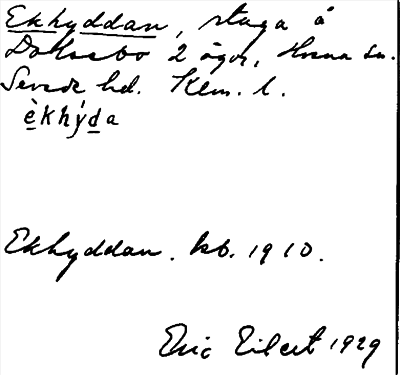 Ekhyddan, stuga å
2 ägor, Hvena sn.
Sevede hd. Klm. l.
èkhýda
Ekhyddan. kb. 1910.
Eric Eilert 1929